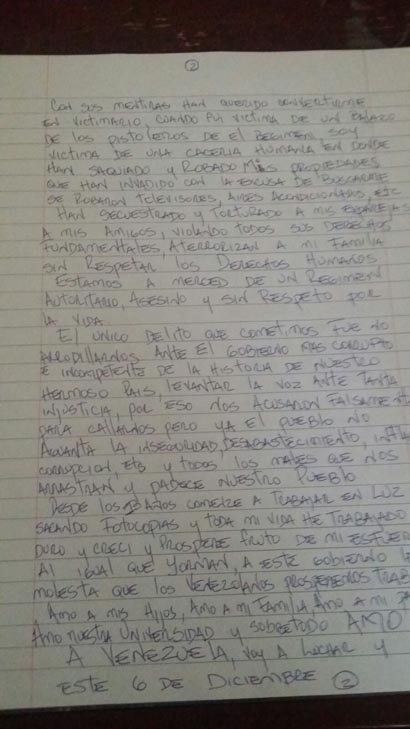 ②
Con sus mentiras han querido convertirme
en victimario, cuando fui victima de un balazo
de los pistoleros de el regimen, soy
victima de una caceria humana en donde
han saquiado y robado mis propiedades
que han invadido con la excusa de buscarme
se robaron televisores, aires acondicionados, etc
Han secuestrado y torturado a mis
a mis amigos, violando todos sus derechos
fundamentales, aterrorizan a mi familia
sin respetar los Derechos Humanos
Estamos a merced de un regimen
autoritario, asesino y sin respeto por
la vida.
El unico delito que cometimos fue no
arrodillarnos ante el gobierno mas corrupto
e incompetente de la historia de nuestro
hermoso pais, levantar la voz ante tanta
injusticia, por eso nos acusaron
para callarnos pero ya el pueblo no
aguanta la inseguridad, desabastecimiento,
corrupcion, etc y todos los males que nos
arrastran y padece nuestro pueblo
Desde los años comenze a trabajar en LUZ
sacando fotocopias y toda mi vida he trabajado
duro y creci y prospere fruto de mi
Al igual que Yorman, a este gobierno
molesta que los venezolanos prosperemos
Amo a mis hijos, amo a mi familia, amo a mi
Amo nuestra universidad y sobretodo AMO
A VENEZUELA, voy a luchar y
ESTE 6 DE DICIEMBRE ②